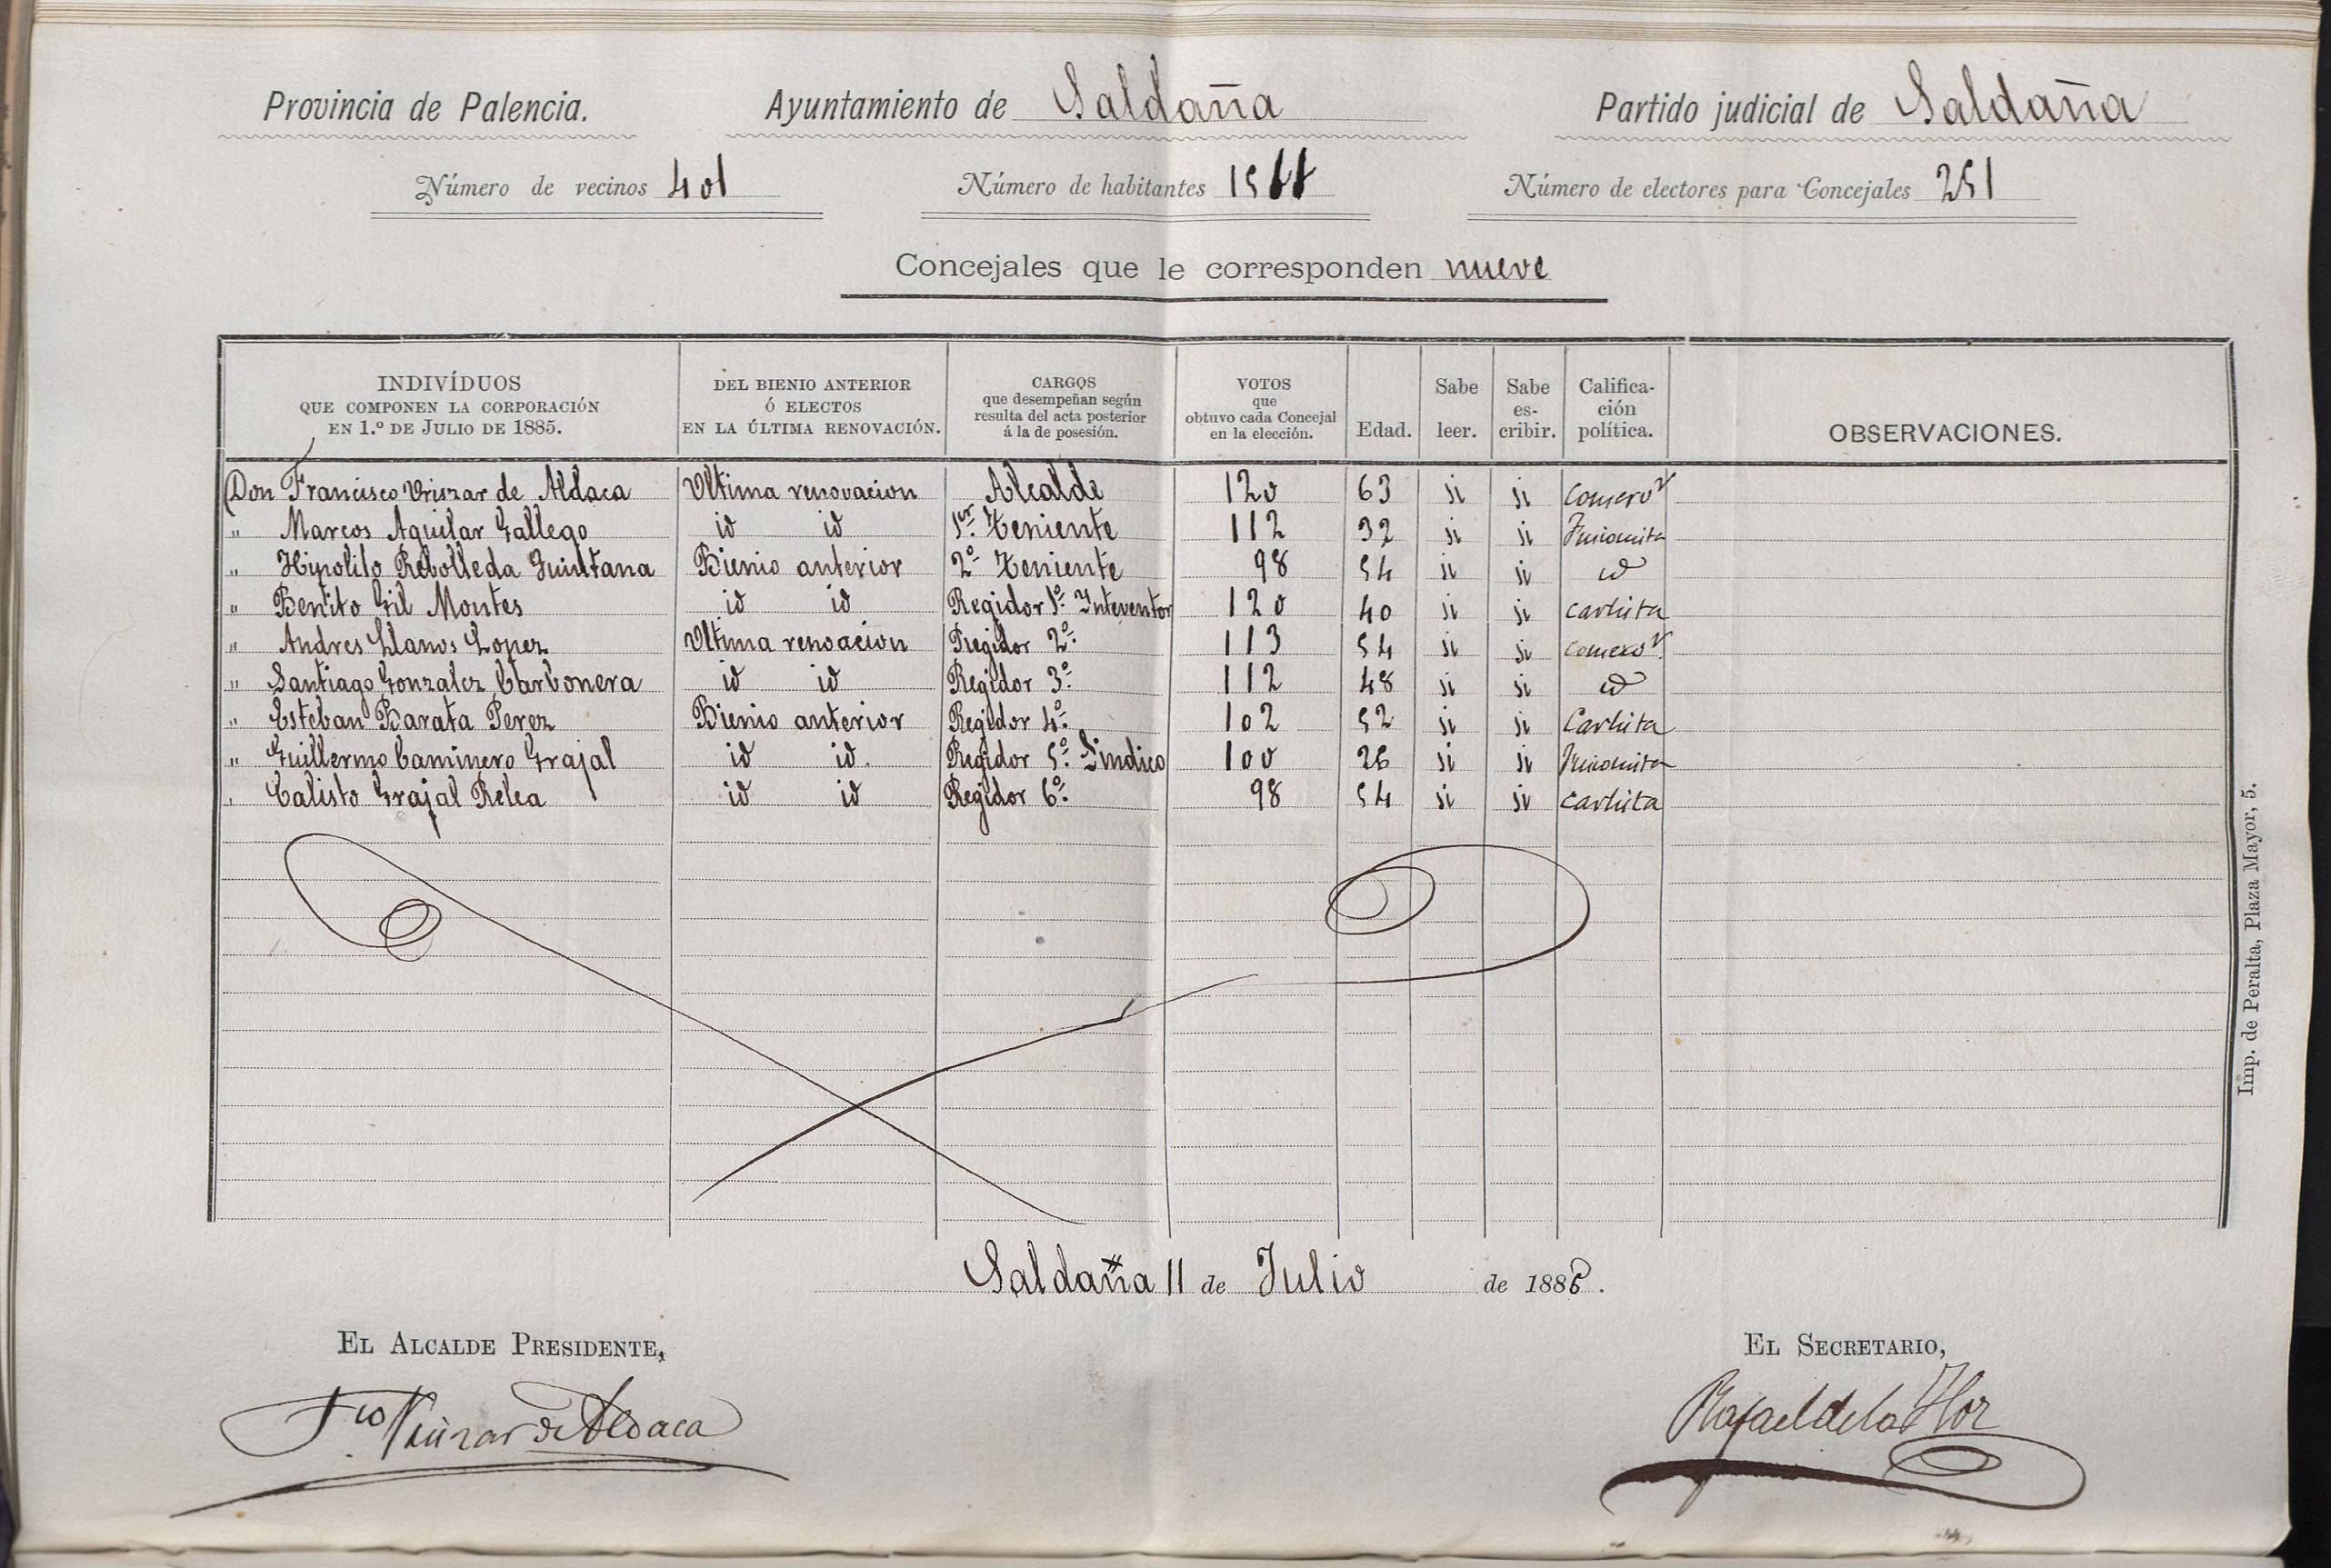 Provincia de Palencia. Ayuntamiento de Saldaña Partido judicial de Saldaña
Número de vecinos 401 Número de habitantes Número de electores para Concejales 251
Concejales que le corresponden nueve
INDIVÍDUOS QUE COMPONEN LA CORPORACIÓN EN 1.º DE JULIO DE 1885. DEL BIENIO ANTERIOR Ó ELECTOS EN LA ÚLTIMA RENOVACIÓN. CARGOS que desempeñan según resulta del acta posterior á la de posesión. VOTOS que obtuvo cada Concejal en la elección. Edad. Sabe leer. Sabe es-cribir. Califica-ción política. OBSERVACIONES.
Don Francisco Vriszar de Aldaca Ultima renovacion Alcalde 120 63 si si Conserv.r
" Marcos Aguilar Gallego id id 1er Teniente 112 32 si si Fusionista
" Hipolito Rebolleda Quintana Bienio anterior 2º Teniente 98 54 si si id
" Benito Gil Montes id id Regidor 1º Inteventor 120 40 si si carlista
" Andres Llanos Lopez Ultima renoacion Regidor 2º 113 54 si si conser.r
" Santiago Gonzalez Carbonera id id Regidor 3º 112 48 si si id
" Esteban Barata Perez Bienio anterior Regidor 4º 102 52 si si Carlista
" Guillermo Caminero Grajal id id. Regidor 5º Sindico 100 26 si si Fusionista
" Calisto Grajal Relea id id Regidor 6º 98 54 si si carlista
Saldaña 11 de Julio de 1885.
EL ALCALDE PRESIDENTE, EL SECRETARIO,
Fco Vriszar de Aldaca Rafael de la Hoz
Imp. de Peralta, Plaza Mayor, 5.